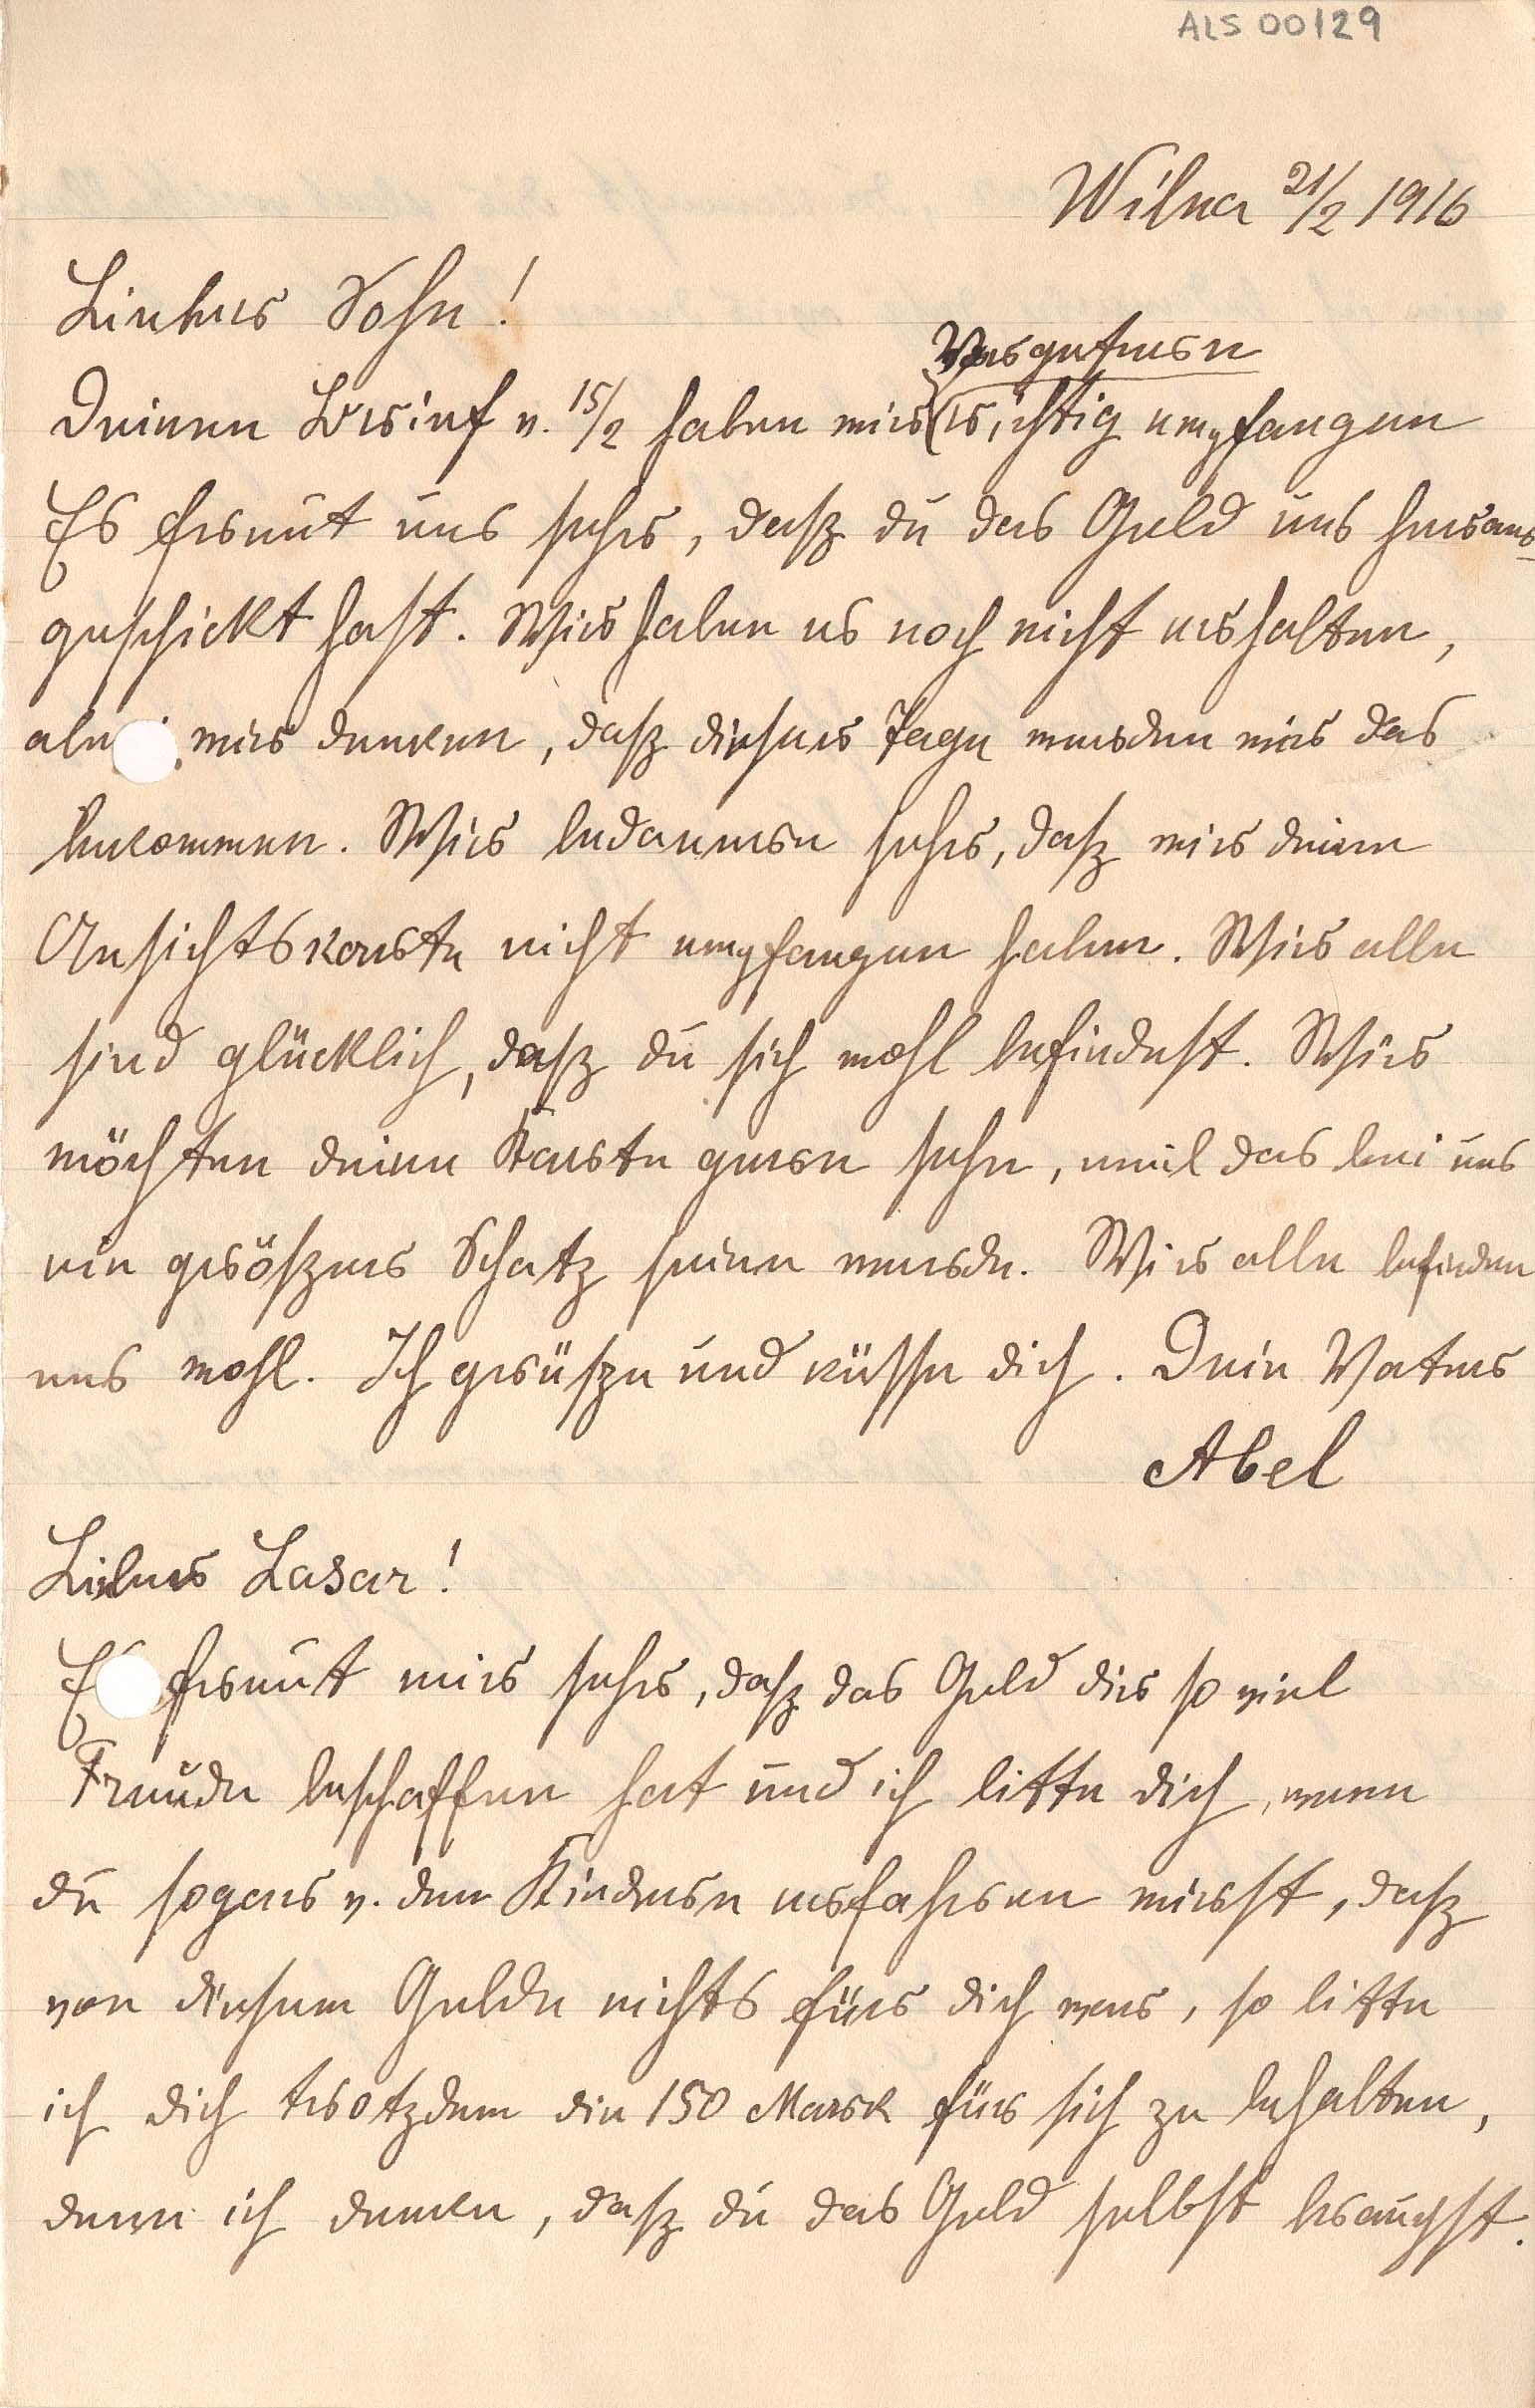 ALS 00129
Wilna 21/2 1916
Lieber Sohn!
Vorgestern
Deinen Brief v. 15/2 haben wir richtig empfangen
Es freut uns sehr, dasz du das Geld uns heraus-
geschickt hast. Wir haben es noch nicht erhalten,
abe wir denken, dasz dieser Tage werden wir das
bekommen. Wir bedauern sehr, dasz wir deine
Ansichtskarte nicht empfangen haben. Wir alle
sind glücklich, dasz du sich wohl befindest. Wir
möchten deine Karte gern sehn, weil das bei uns
ein gröszer Schatz seine werde. Wir alle befinden
uns wohl. Ich grüsze und küsse dich. Dein Vater
Abel
Lieber Lasar!
E freut mir sehr, dasz das Geld dir so viel
Freude beschaffen hat und ich bitte dich, wenn
du sogar v. den Kindern erfahren wirst, dasz
von diesem Gelde nichts für dich war, so bitte
ich dich trotzdem die 150 Mark für sich zu behalten,
denn ich denke, dasz du das Geld selbst brauchst.